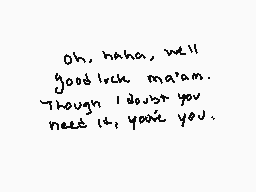 oh, haha, well
good luck ma'am.
Though I doubt you
need it, you're you.